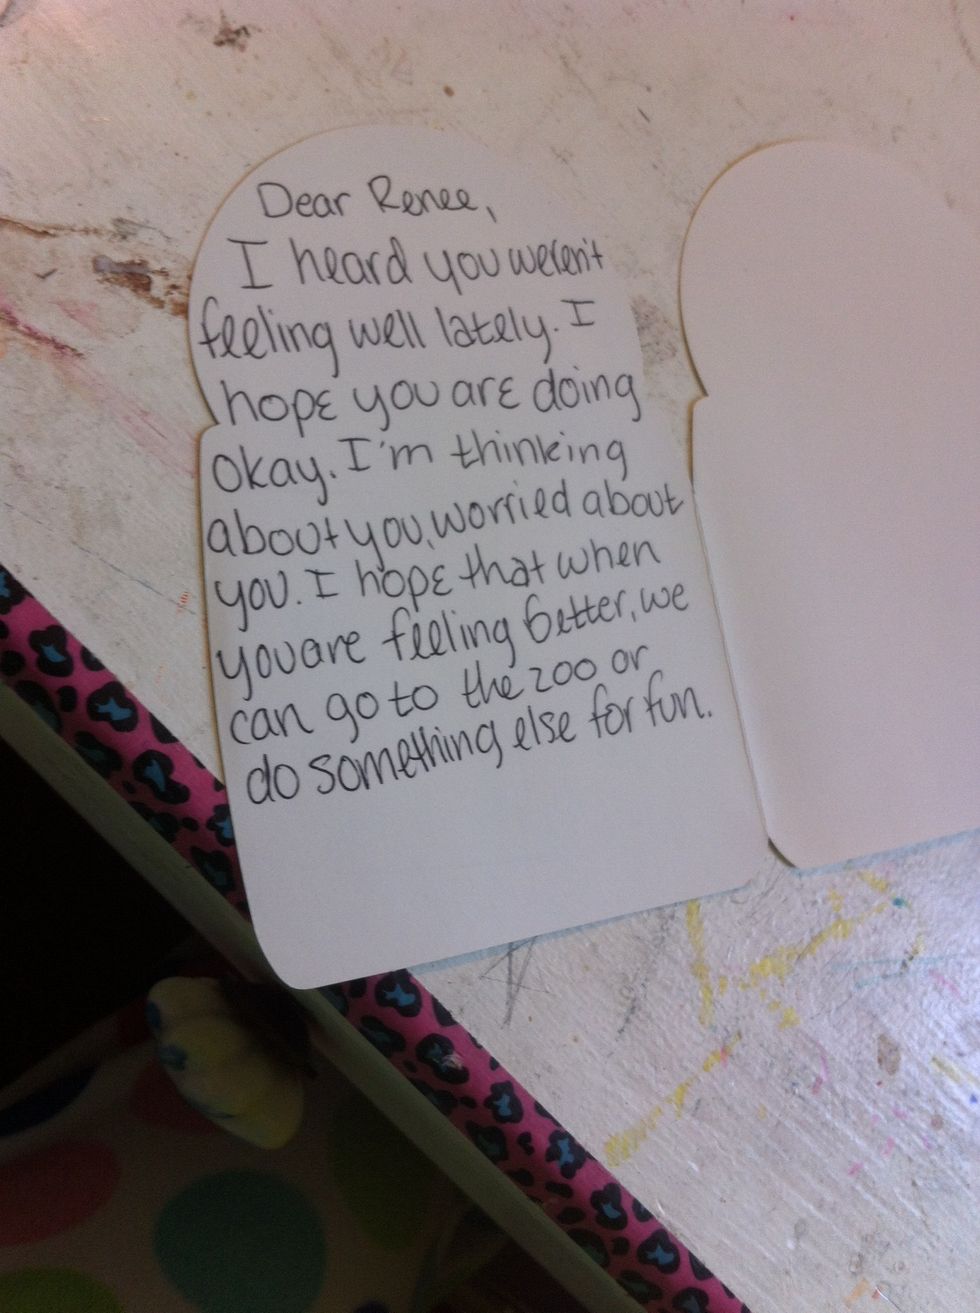 Dear Renee,
I heard you weren't
feeling well lately. I
hope you are doing
okay. I'm thinking
about you, worried about
you. I hope that when
you are feeling better, we
can go to the zoo or
do something else for fun.